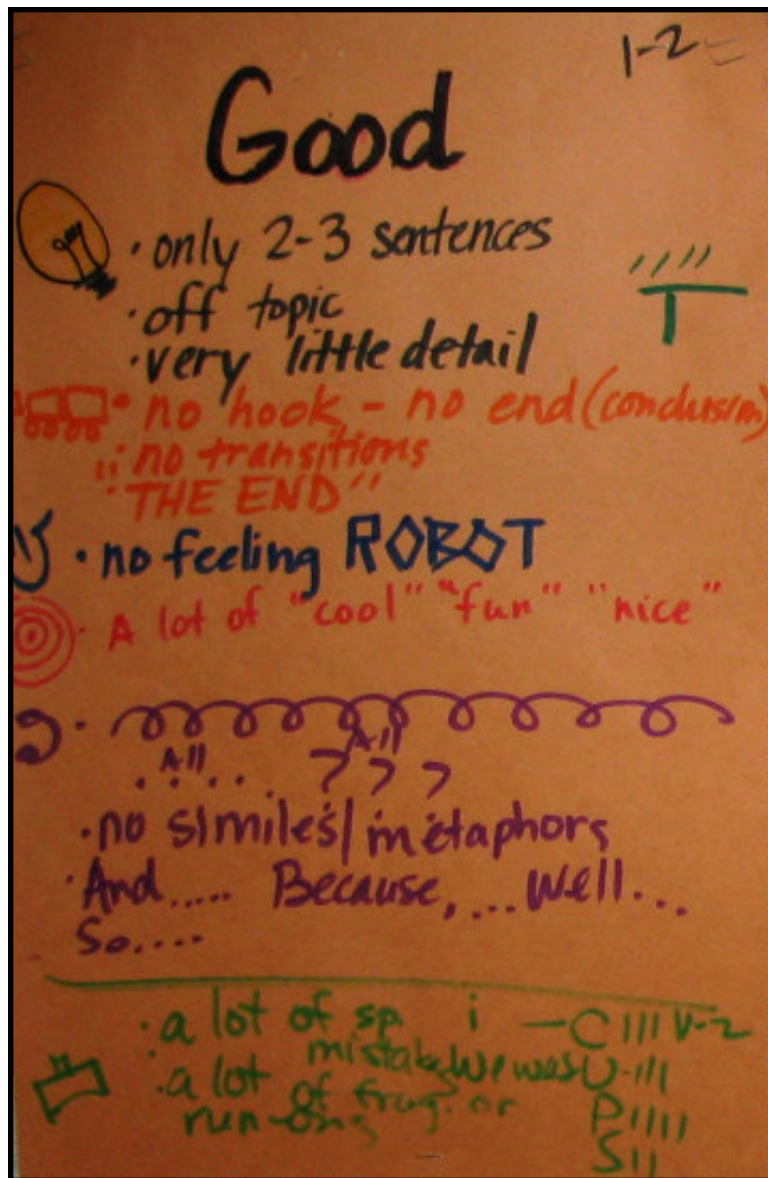 1-2
Good
· only 2-3 sentences
· off topic
· very little detail
· no hook - no end (conclusion)
· no transitions
"THE END"
· no feeling ROBOT
· A lot of "cool" "fun" "nice"
All All
. . . . . ? ? ?
· no similes/metaphors
· And ..... Because, ... Well ...
So ....
· a lot of sp. i - C III V-2
mistakes We was U-III
· a lot of frag. or P IIII
run-ons S II